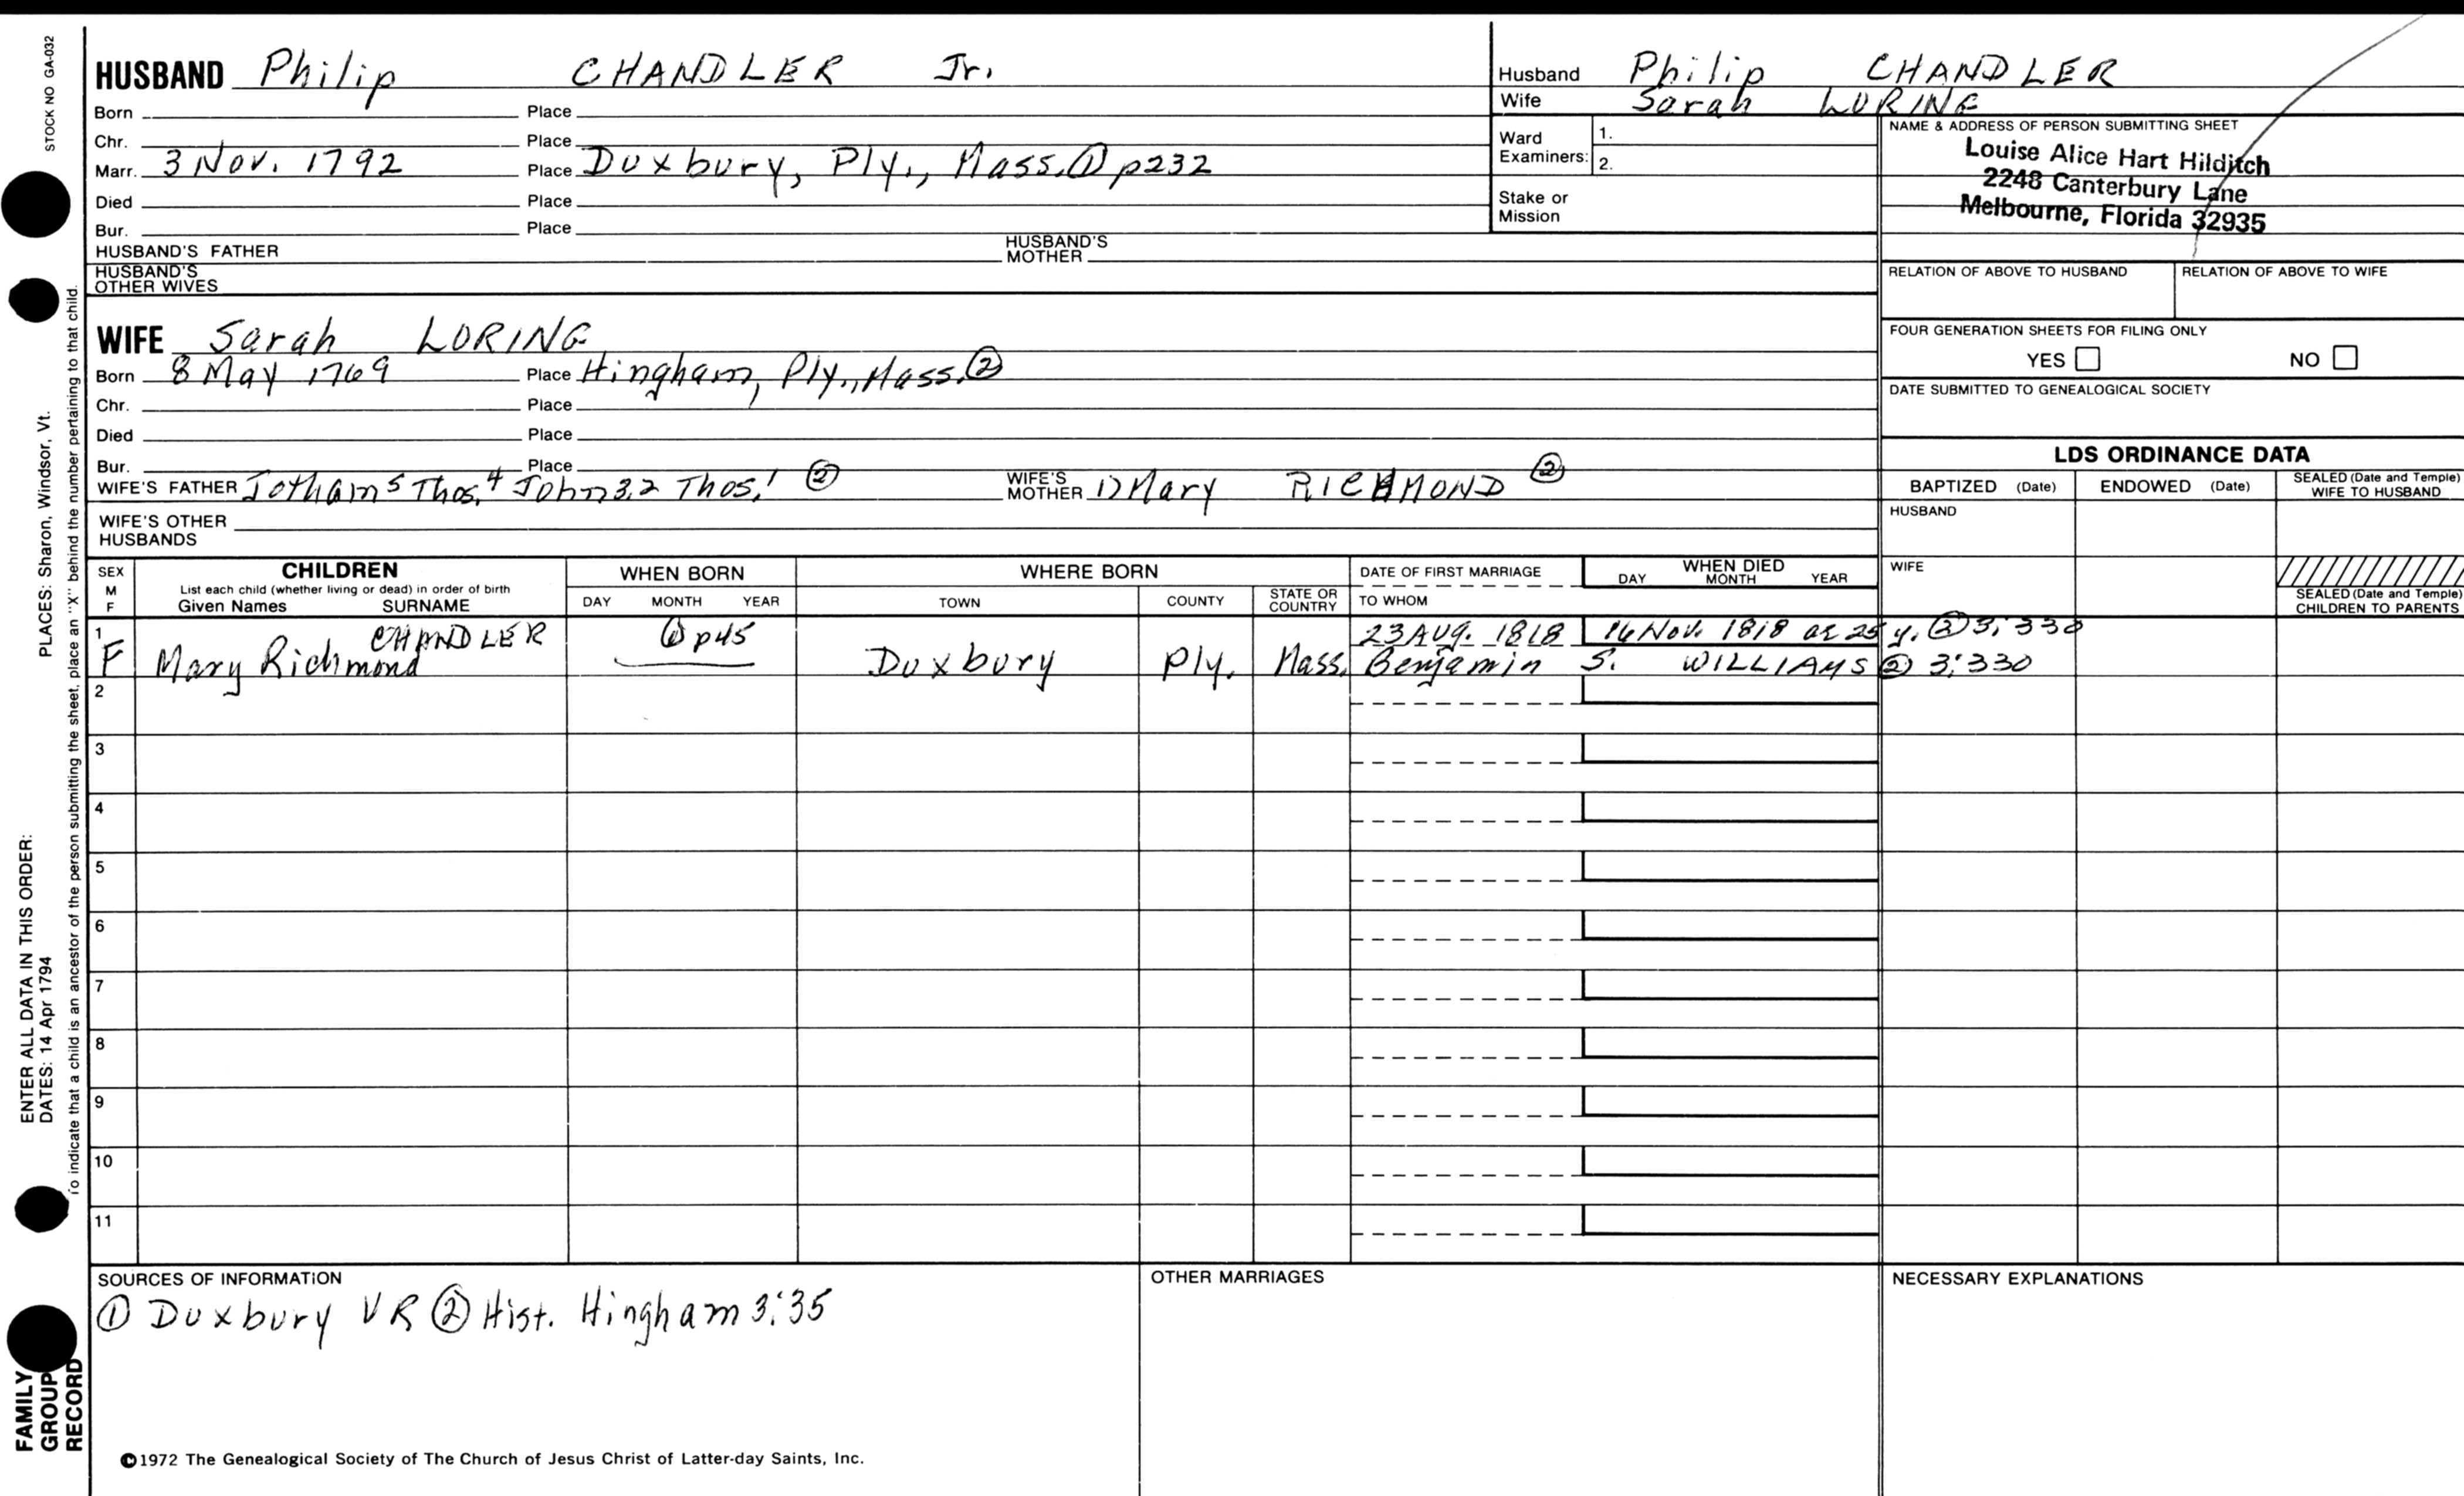 STOCK NO GA-032
HUSBAND Philip CHANDLER Jr.
Born Place
Chr. Place
Marr. 3 Nov. 1792 Place Duxbury, Ply., Mass. ① p232
Died Place
Bur. Place
HUSBAND'S FATHER HUSBAND'S MOTHER
HUSBAND'S OTHER WIVES
Husband Philip CHANDLER
Wife Sarah LORING
Ward Examiners: 1.
2.
Stake or Mission
NAME & ADDRESS OF PERSON SUBMITTING SHEET
Louise Alice Hart Hilditch
2248 Canterbury Lane
Melbourne, Florida 32935
RELATION OF ABOVE TO HUSBAND RELATION OF ABOVE TO WIFE
FOUR GENERATION SHEETS FOR FILING ONLY
YES NO
DATE SUBMITTED TO GENEALOGICAL SOCIETY
WIFE Sarah LORING
Born 8 May 1769 Place Hingham, Ply., Mass. ②
Chr. Place
Died Place
Bur. Place
WIFE'S FATHER Jotham5 Thos.4 John3,2 Thos.1 ② WIFE'S MOTHER 1) Mary RICHMOND ②
WIFE'S OTHER HUSBANDS
LDS ORDINANCE DATA
BAPTIZED (Date) ENDOWED (Date) SEALED (Date and Temple) WIFE TO HUSBAND
HUSBAND
WIFE
SEALED (Date and Temple) CHILDREN TO PARENTS
SEX M F
CHILDREN
List each child (whether living or dead) in order of birth
Given Names SURNAME
WHEN BORN
DAY MONTH YEAR
WHERE BORN
TOWN COUNTY STATE OR COUNTRY
DATE OF FIRST MARRIAGE
TO WHOM
WHEN DIED
DAY MONTH YEAR
1 CHANDLER ① p45 23 Aug. 1818 14 Nov. 1818 ae 25 y. ② 3:330
F Mary Richmond Duxbury Ply. Mass. Benjamin S. WILLIAMS ② 3:330
2
3
4
5
6
7
8
9
10
11
SOURCES OF INFORMATION
① Duxbury VR ② Hist. Hingham 3:35
OTHER MARRIAGES
NECESSARY EXPLANATIONS
©1972 The Genealogical Society of The Church of Jesus Christ of Latter-day Saints, Inc.
ENTER ALL DATA IN THIS ORDER:
DATES: 14 Apr 1794 PLACES: Sharon, Windsor, Vt.
To indicate that a child is an ancestor of the person submitting the sheet, place an "X" behind the number pertaining to that child.
FAMILY
GROUP
RECORD